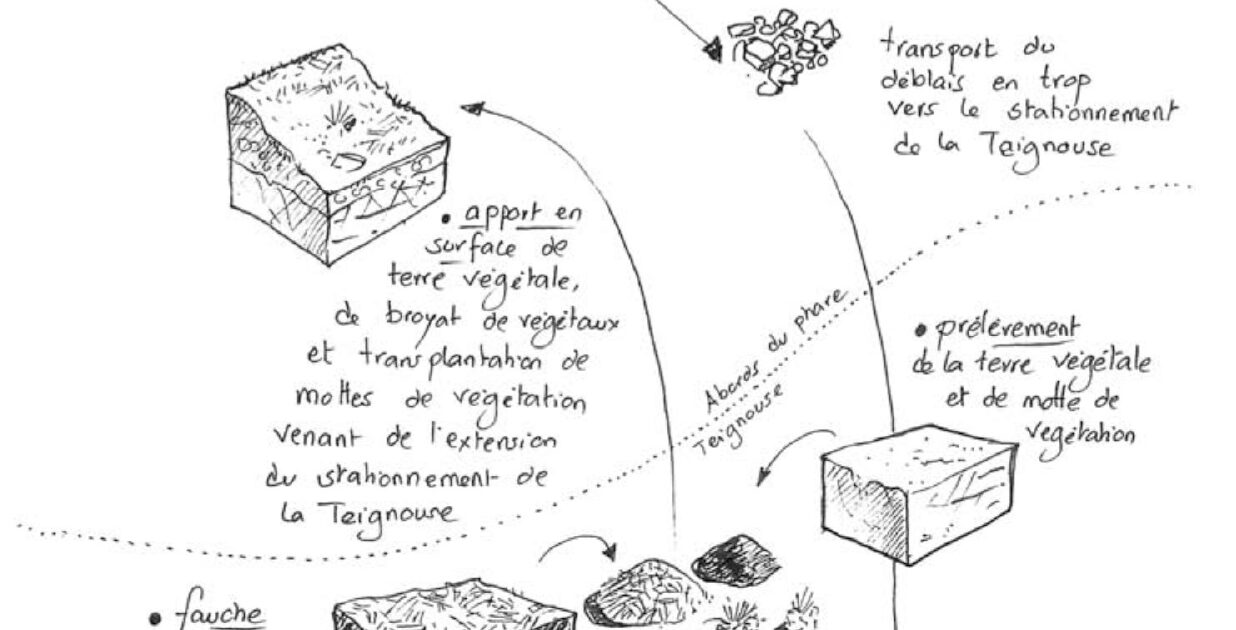 transport du
déblais en trop
vers le stationnement
de la Teignouse
• apport en
surface de
terre végétale,
de broyat de végétaux
et transplantation de
mottes de végétation
venant de l'extension
du stationnement de
la Teignouse
Abords du phare
Teignouse
• prélévement
de la terre végétale
et de motte de
végétation
• fauche